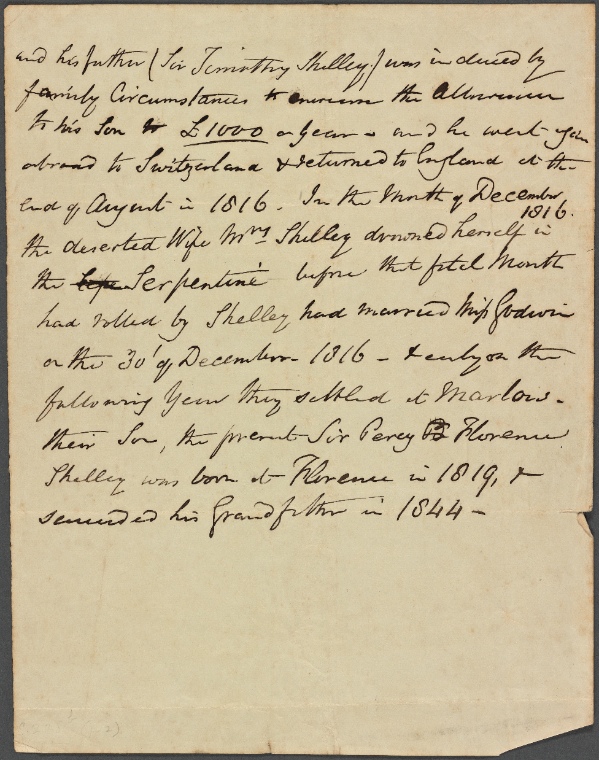 and his father (Sir Timothy Shelley) was induced by
family Circumstances to increase the Allowance
to his Son to £1000 a year - and he went again
abroad to Switzerland & returned to England at the
end of August in 1816. In the Month of December
1816.
the deserted Wife Mrs Shelley drowned herself in
the Serpentine before that fatal Month
had rolled by Shelley had married Miss Godwin
on the 30' of December - 1816 - & early on the
following Year they settled at Marlow -
their Son, the present Sir Percy Florence
Shelley was born at Florence in 1819, &
succeeded his Grandfather in 1844 -